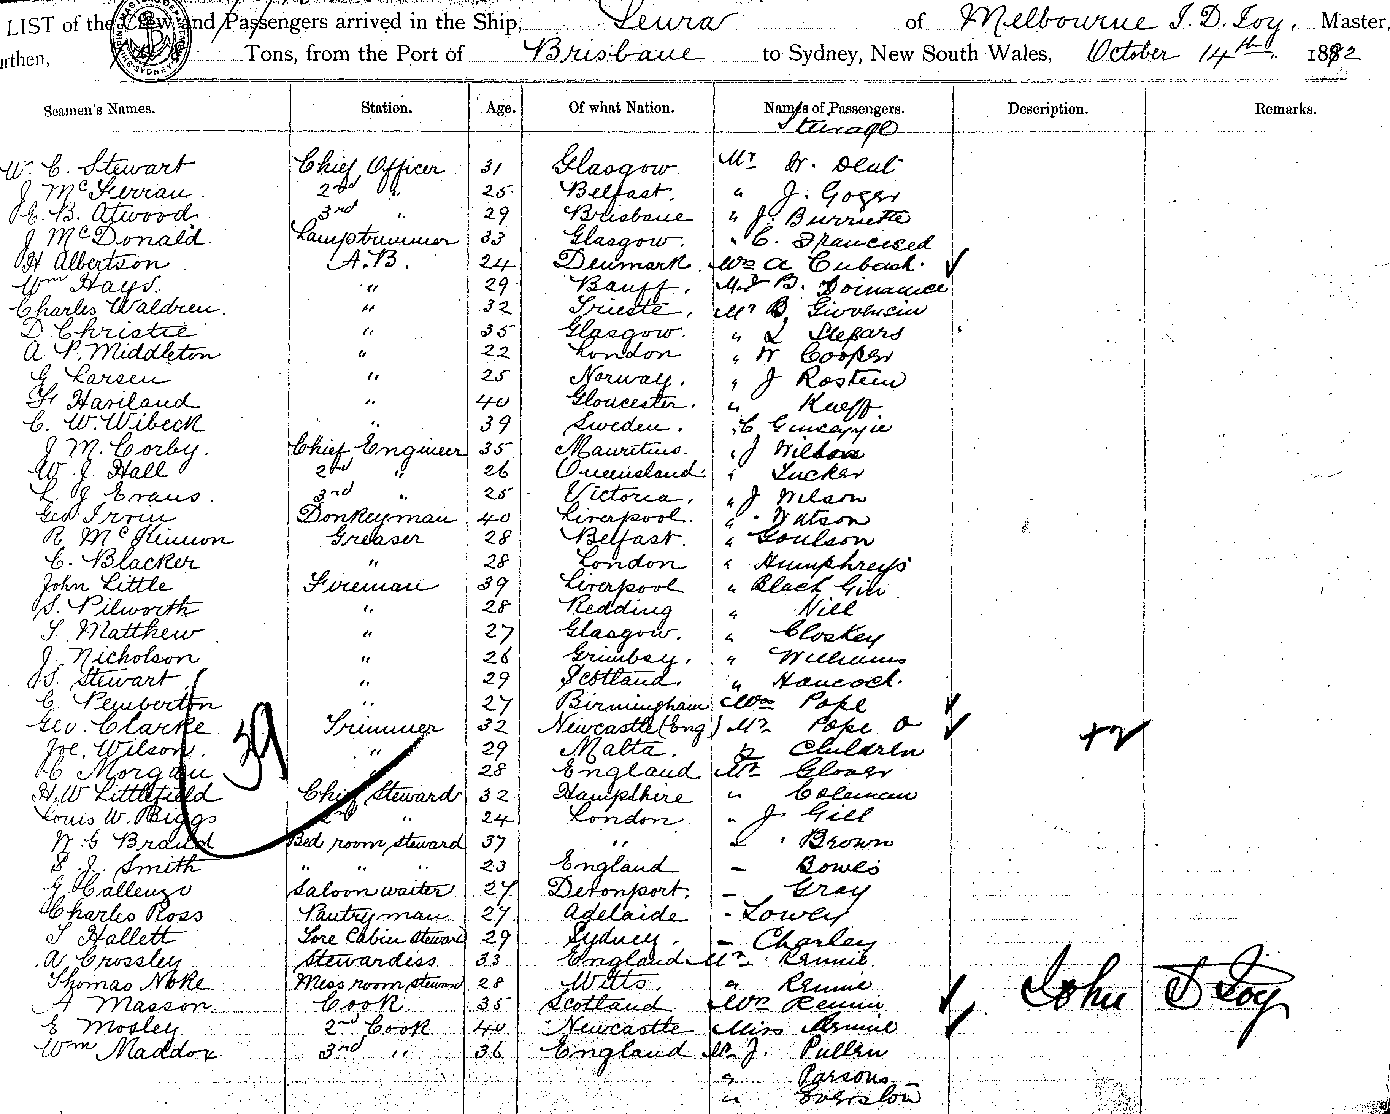 LIST of the Crew and Passengers arrived in the Ship, Leura of Melbourne J. D. Loy, Master,
urthen, Tons, from the Port of Brisbane to Sydney, New South Wales, October 14th 1892
Seamen's Names. Station. Age. Of what Nation. Names of Passengers. Description. Remarks.
Steerage
W. C. Stewart Chief Officer 31 Glasgow Mr W. Dent
J McFerran 2nd " 25 Belfast. " J. Goger
E. B. Atwood 3rd " 29 Brisbane " J. Burnette
J McDonald Lamptrimmer 33 Glasgow. " C.
H Albertson A.B. 24 Denmark
Wm Hays. " 29 Banff.
Charles Waldren. " 32 Trieste. Mr
D Christie " 35 Glasgow. " L
A P. Middleton " 22 London " W Cooper
G Larsen " 25 Norway. " J Rostein
Haviland " 40 Gloucester. "
C. W. Wibeck " 39 Sweden. " C
J M. Corby. Chief Engineer 35 Mauritius. " J Wilson
W J Hall 2nd " 26 Queensland. " Tucker
L J Evans. 3rd " 25 Victoria. " J Wilson
Geo Irvin Donkeyman 40 Liverpool. " Watson
R McKinnon Greaser 28 Belfast. " Goulson
C. Blacker " 28 London " Humphreys
John Little Fireman 39 Liverpool " Black Gin
S. Pilworth " 28 Redding " Nill
T Matthew " 27 Glasgow. " Closkey
J. Nicholson " 26 Grimbsy. " Williams
S. Stewart " 29 Scotland. " Hancock.
G Pemberton " 27 Birmingham Mrs Pope
Geo. Clarke Trimmer 32 Newcastle (Eng) Mr Pope &
Joe. Wilson. " 29 Malta. 2 Children +2
39
C Morgan " 28 England Mr Glover
H. W Littlefield Chief Steward 32 Hampshire " Coleman
Louis W. Biggs 2nd " 24 London " J Gill
W G Braud Bed room steward 37 " " Brown
S J Smith " " " 23 England – Bowes
G Callengo Saloon waiter 27 Devonport. – Gray
Charles Ross Pantryman 27 Adelaide - Lowey
T Hallett Fore Cabin steward 29 Sydney. – Charley
A Crossley Stewardess 33 England Mr Rennie.
Thomas Noke Mess room steward 28 Wilts " Rennie
A Masson Cook 35 Scotland Mrs Rennie John D Loy
E Mosley 2nd Cook 40 Newcastle Miss Rennie
Wm Maddox 3rd " 36 England Mr J. Pullen
" Parsons
" Everslow